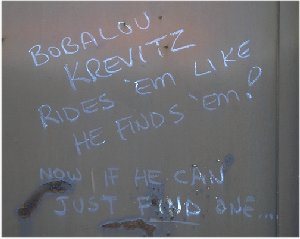 BOBALOU
KREVITZ
RIDES 'EM LIKE
HE FINDS 'EM!
NOW IF HE CAN
JUST FIND ONE...